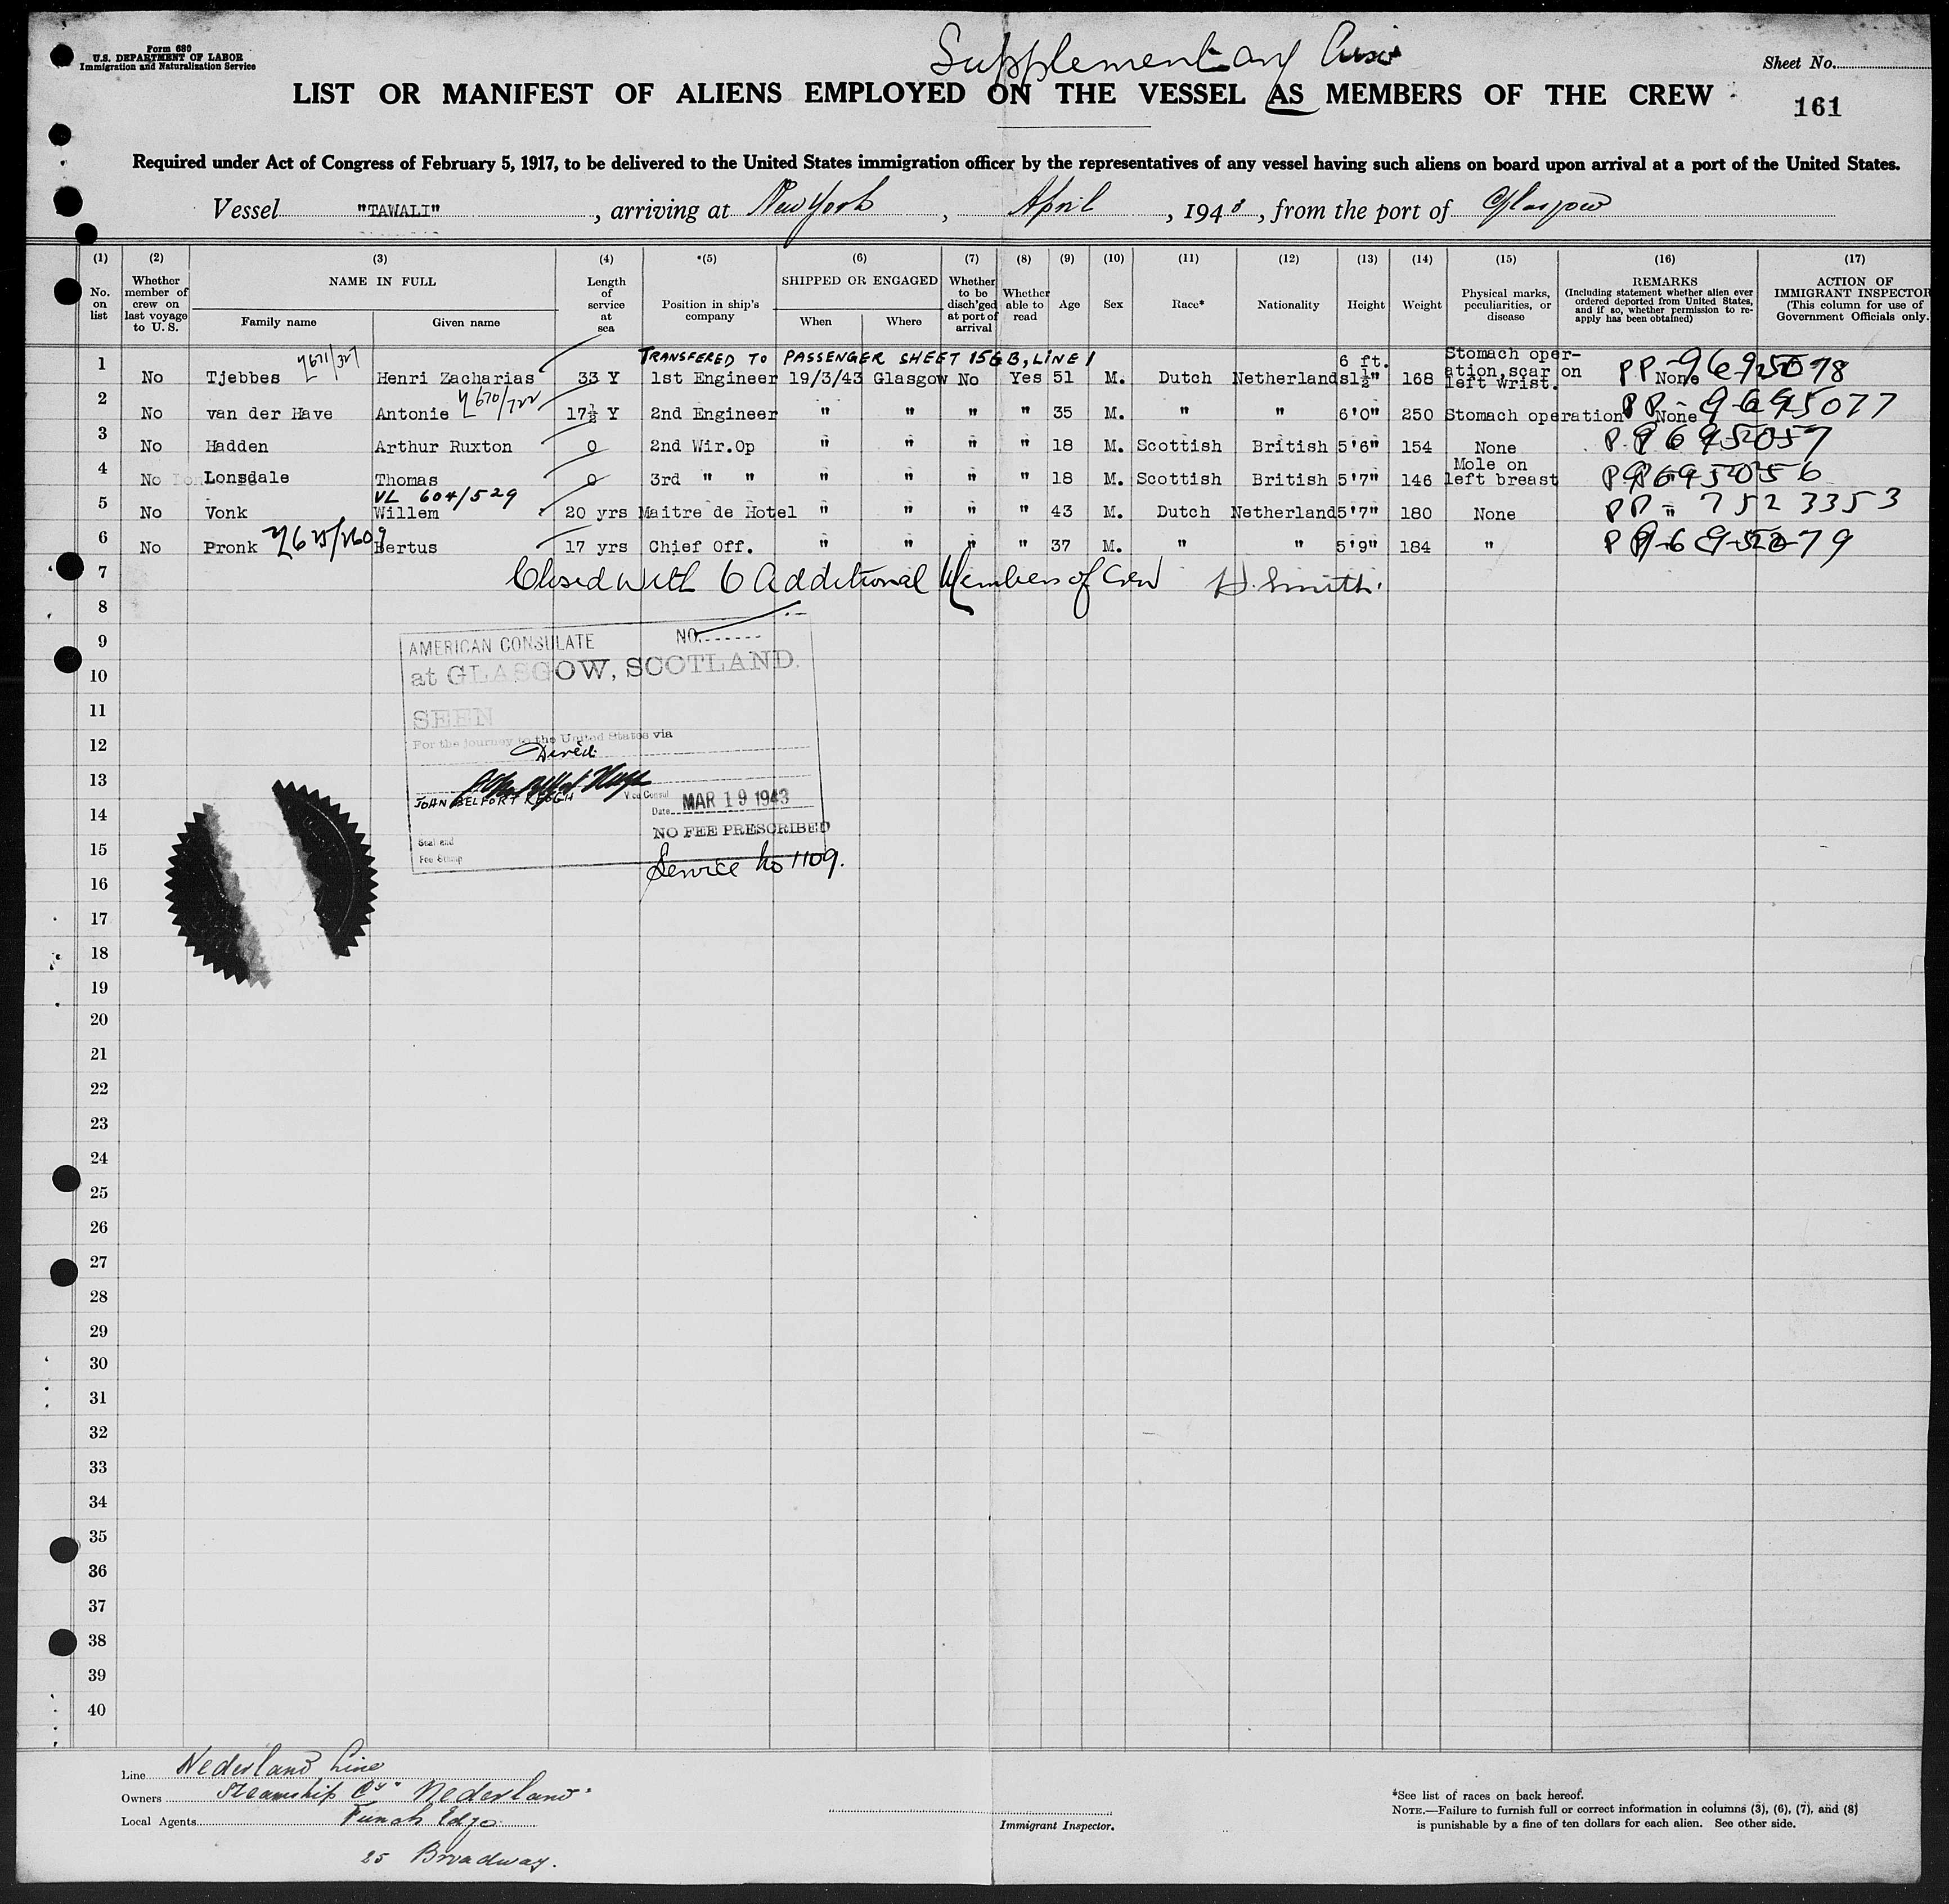 Form 680
U.S. DEPARTMENT OF LABOR
Immigration and Naturalization Service
Supplementary
Sheet No.
LIST OR MANIFEST OF ALIENS EMPLOYED ON THE VESSEL AS MEMBERS OF THE CREW
161
Required under Act of Congress of February 5, 1917, to be delivered to the United States immigration officer by the representatives of any vessel having such aliens on board upon arrival at a port of the United States.
Vessel "TAWALI", arriving at New York, April, 1943, from the port of Glasgow
(1) (2) (3) (4) *(5) (6) (7) (8) (9) (10) (11) (12) (13) (14) (15) (16) (17)
No. on list
Whether member of crew on last voyage to U. S.
NAME IN FULL
Family name
Given name
Length of service at sea
Position in ship's company
SHIPPED OR ENGAGED
When
Where
Whether to be disch'ged at port of arrival
Whether able to read
Age
Sex
Race*
Nationality
Height
Weight
Physical marks, peculiarities, or disease
REMARKS
(Including statement whether alien ever ordered deported from United States, and if so, whether permission to re-apply has been obtained)
ACTION OF IMMIGRANT INSPECTOR
(This column for use of Government Officials only.
TRANSFERED TO PASSENGER SHEET 156B, LINE 1
1 No Tjebbes 671/327 Henri Zacharias 33 Y 1st Engineer 19/3/43 Glasgow No Yes 51 M. Dutch Netherlands 6 ft. 1½" 168 Stomach oper-ation, scar on left wrist. None PP 9695078
2 No van der Have Antonie 670/722 17½ Y 2nd Engineer " " " " 35 M. " " 6'0" 250 Stomach operation None PP 9695077
3 No Hadden Arthur Ruxton 0 2nd Wir.Op " " " " 18 M. Scottish British 5'6" 154 None P.P 9695057
4 No Lonsdale Thomas 0 3rd " " " " " " 18 M. Scottish British 5'7" 146 Mole on left breast PP 9695056
5 No Vonk VL 604/529 Willem 20 yrs Maitre de Hotel " " " " 43 M. Dutch Netherland 5'7" 180 None " PP 7523353
6 No Pronk Bertus 17 yrs Chief Off. " " " " 37 M. " " 5'9" 184 " PP
7 Closed with 6 Additional Members of Crew H. Smith.
8
9
10
11
12
13
14
15
16
17
18
19
20
21
22
23
24
25
26
27
28
29
30
31
32
33
34
35
36
37
38
39
40
AMERICAN CONSULATE NO.
at GLASGOW, SCOTLAND.
SEEN
For the journey to the United States via
Direct
JOHN BELFORT KEOGH Vice Consul
Date MAR 19 1943
NO FEE PRESCRIBED
Seal and
Fee Stamp
Service No 1109.
Line Nederland Line
Owners Steamship Cy. Nederland
Local Agents Funch Edye
25 Broadway.
Immigrant Inspector.
*See list of races on back hereof.
NOTE.—Failure to furnish full or correct information in columns (3), (6), (7), and (8)
is punishable by a fine of ten dollars for each alien. See other side.